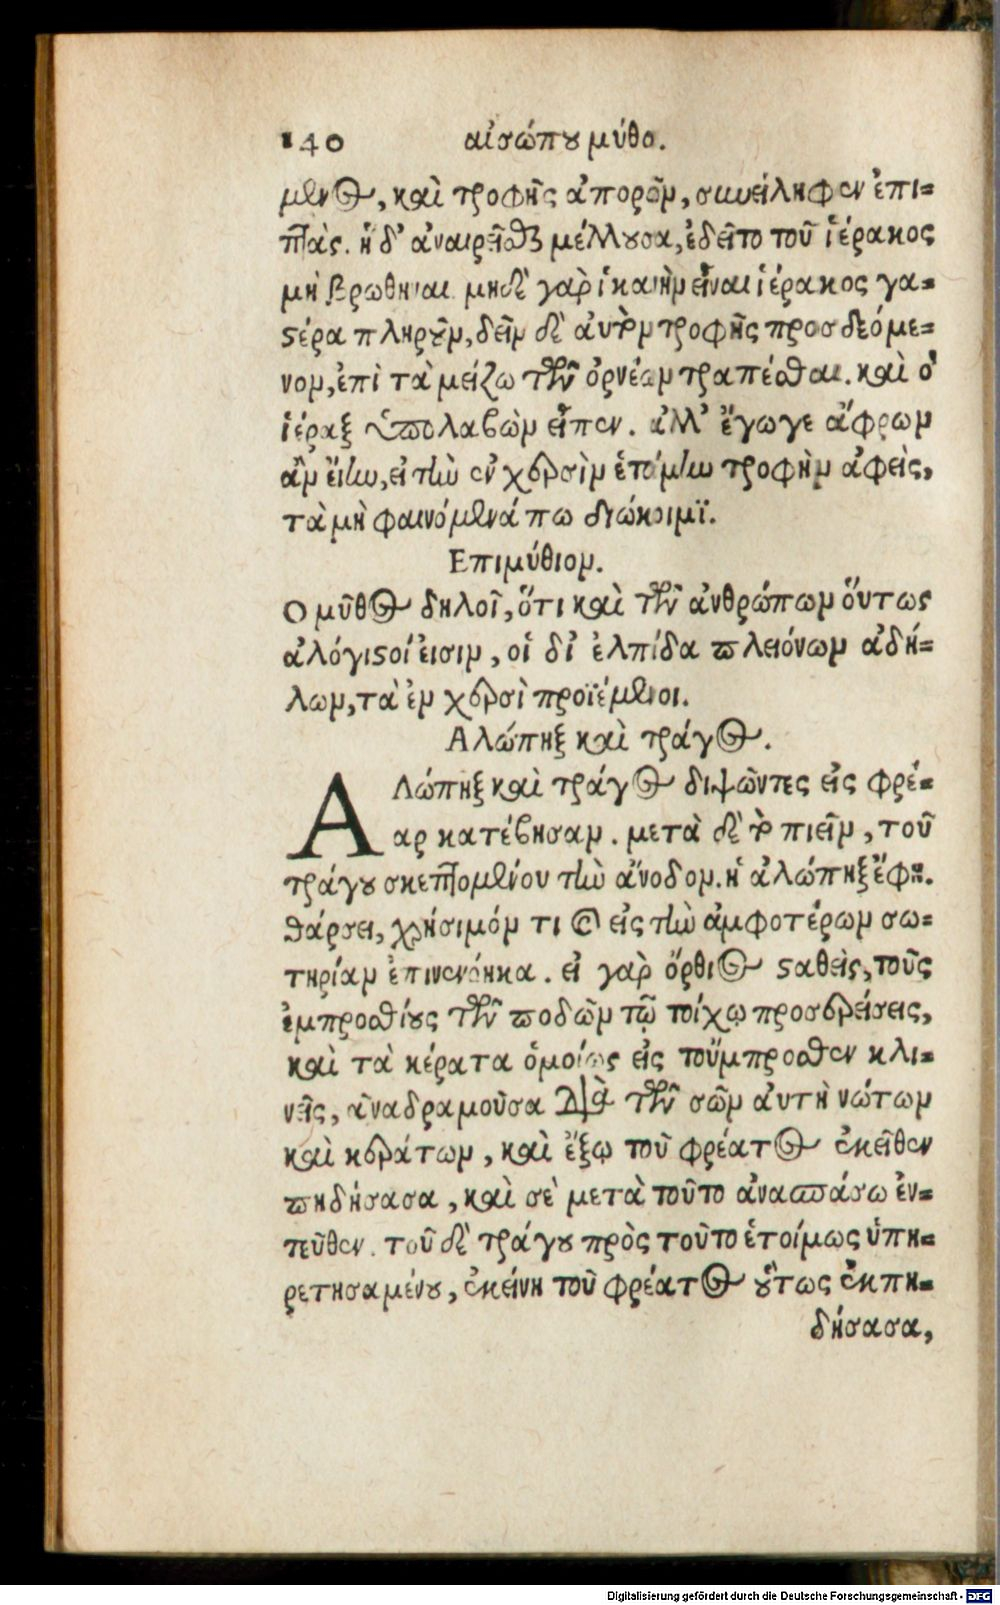 140 αἰσώπου μύθο.
μενος, καὶ τροφῆς ἀπορῶν, συνείληφεν ἐπι=
πτὰς. ἡ δ' ἀναιρεῖσθαι μέλλουσα, ἐδεῖτο τοῦ ἱέρακος
μὴ βρωθῆναι μηδὲ γὰρ ἱκανὴν εἶναι ἱέρακος γα=
στέρα πληροῦν, δεῖν δὲ αὐτὸν τροφῆς προσδεόμε=
νον, ἐπὶ τὰ μείζω τῶν ὀρνέων τραπέσθαι. καὶ ὁ
ἱέραξ ὑπολαβὼν εἶπεν. ἀλλ' ἔγωγε ἄφρων
ἂν εἴην, εἰ τὴν ἐν χερσὶν ἑτοίμην τροφὴν ἀφεὶς,
τὰ μὴ φαινόμενά πω διώκοιμϊ.
Επιμύθιον.
Ο μῦθος δηλοῖ, ὅτι καὶ τῶν ἀνθρώπων ὅυτως
ἀλόγιστοί ἐισιν, οἱ δι' ἐλπίδα πλειόνων ἀδή=
λων, τὰ ἐν χερσὶ προϊέμενοι.
Αλώπηξ καὶ τράγος.
Αλώπηξ καὶ τράγος διψῶντες εἰς φρέ=
αρ κατέβησαν. μετὰ δὲ τὸ πιεῖν, τοῦ
τράγου σκεπτομένου τὴν ἄνοδον. ἡ ἀλώπηξ ἔφη.
θάρσει, χρήσιμόν τι καὶ εἰς τὴν ἀμφοτέρων σω=
τηρίαν ἐπινενόηκα. εἰ γὰρ ὄρθιος σταθεὶς, τοὺς
ἐμπροσθίους τῶν ποδῶν τῷ τοίχῳ προσερείσεις,
καὶ τὰ κέρατα ὁμοίως εἰς τοὔμπροσθεν κλι=
νεῖς, ἀναδραμοῦσα διὰ τῶν σῶν ἀυτὴ νώτων
καὶ κεράτων, καὶ ἔξω τοῦ φρέατος ἐκεῖθεν
πηδήσασα, καὶ σὲ μετὰ τοῦτο ἀνασπάσω ἐν=
τεῦθεν. τοῦ δὲ τράγου πρὸς τοῦτο ἑτοίμως ὑπη=
ρετησαμένου, ἐκείνη τοῦ φρέατος οὕτως ἐκπη=
δήσασα,
Digitalisierung gefördert durch die Deutsche Forschungsgemeinschaft - DFG